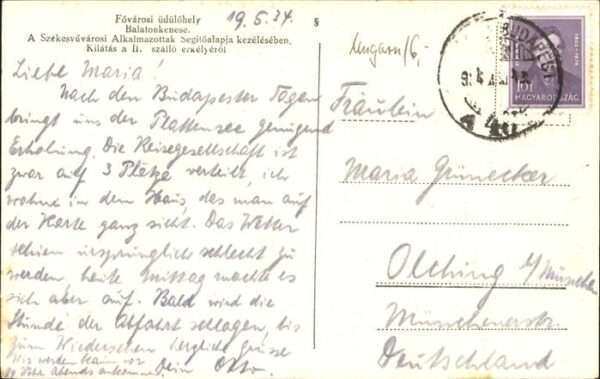 Fővárosi üdülőhely
Balatonkenese.
A Székesfővárosi Alkalmazottak Segítőalapja kezelésében,
Kilátás a II. szálló erkélyéről
19.5.34.
§
Liebe Maria!
Nach den Budapester Tagen
bringt uns der Plattensee genügend
Erholung. Die Reisegesellschaft ist
zwar auf 3 Plätze verteilt, ich
wohne in dem Haus, das man auf
der Karte ganz sieht. Das Wetter
schien ursprünglich schlecht zu
werden, heute Mittag machte es
sich aber auf. Bald wird die
Stunde der Abfahrt schlagen, bis
zum Wiedersehen herzliche Grüsse
Dein Otto.
Wir werden kaum vor
Uhr abends ankommen.
Ungarn
BUDAPEST
MAGYARORSZÁG
Fräulein
Maria Grünecker
Olching b/München
Münchenerstr.
Deutschland